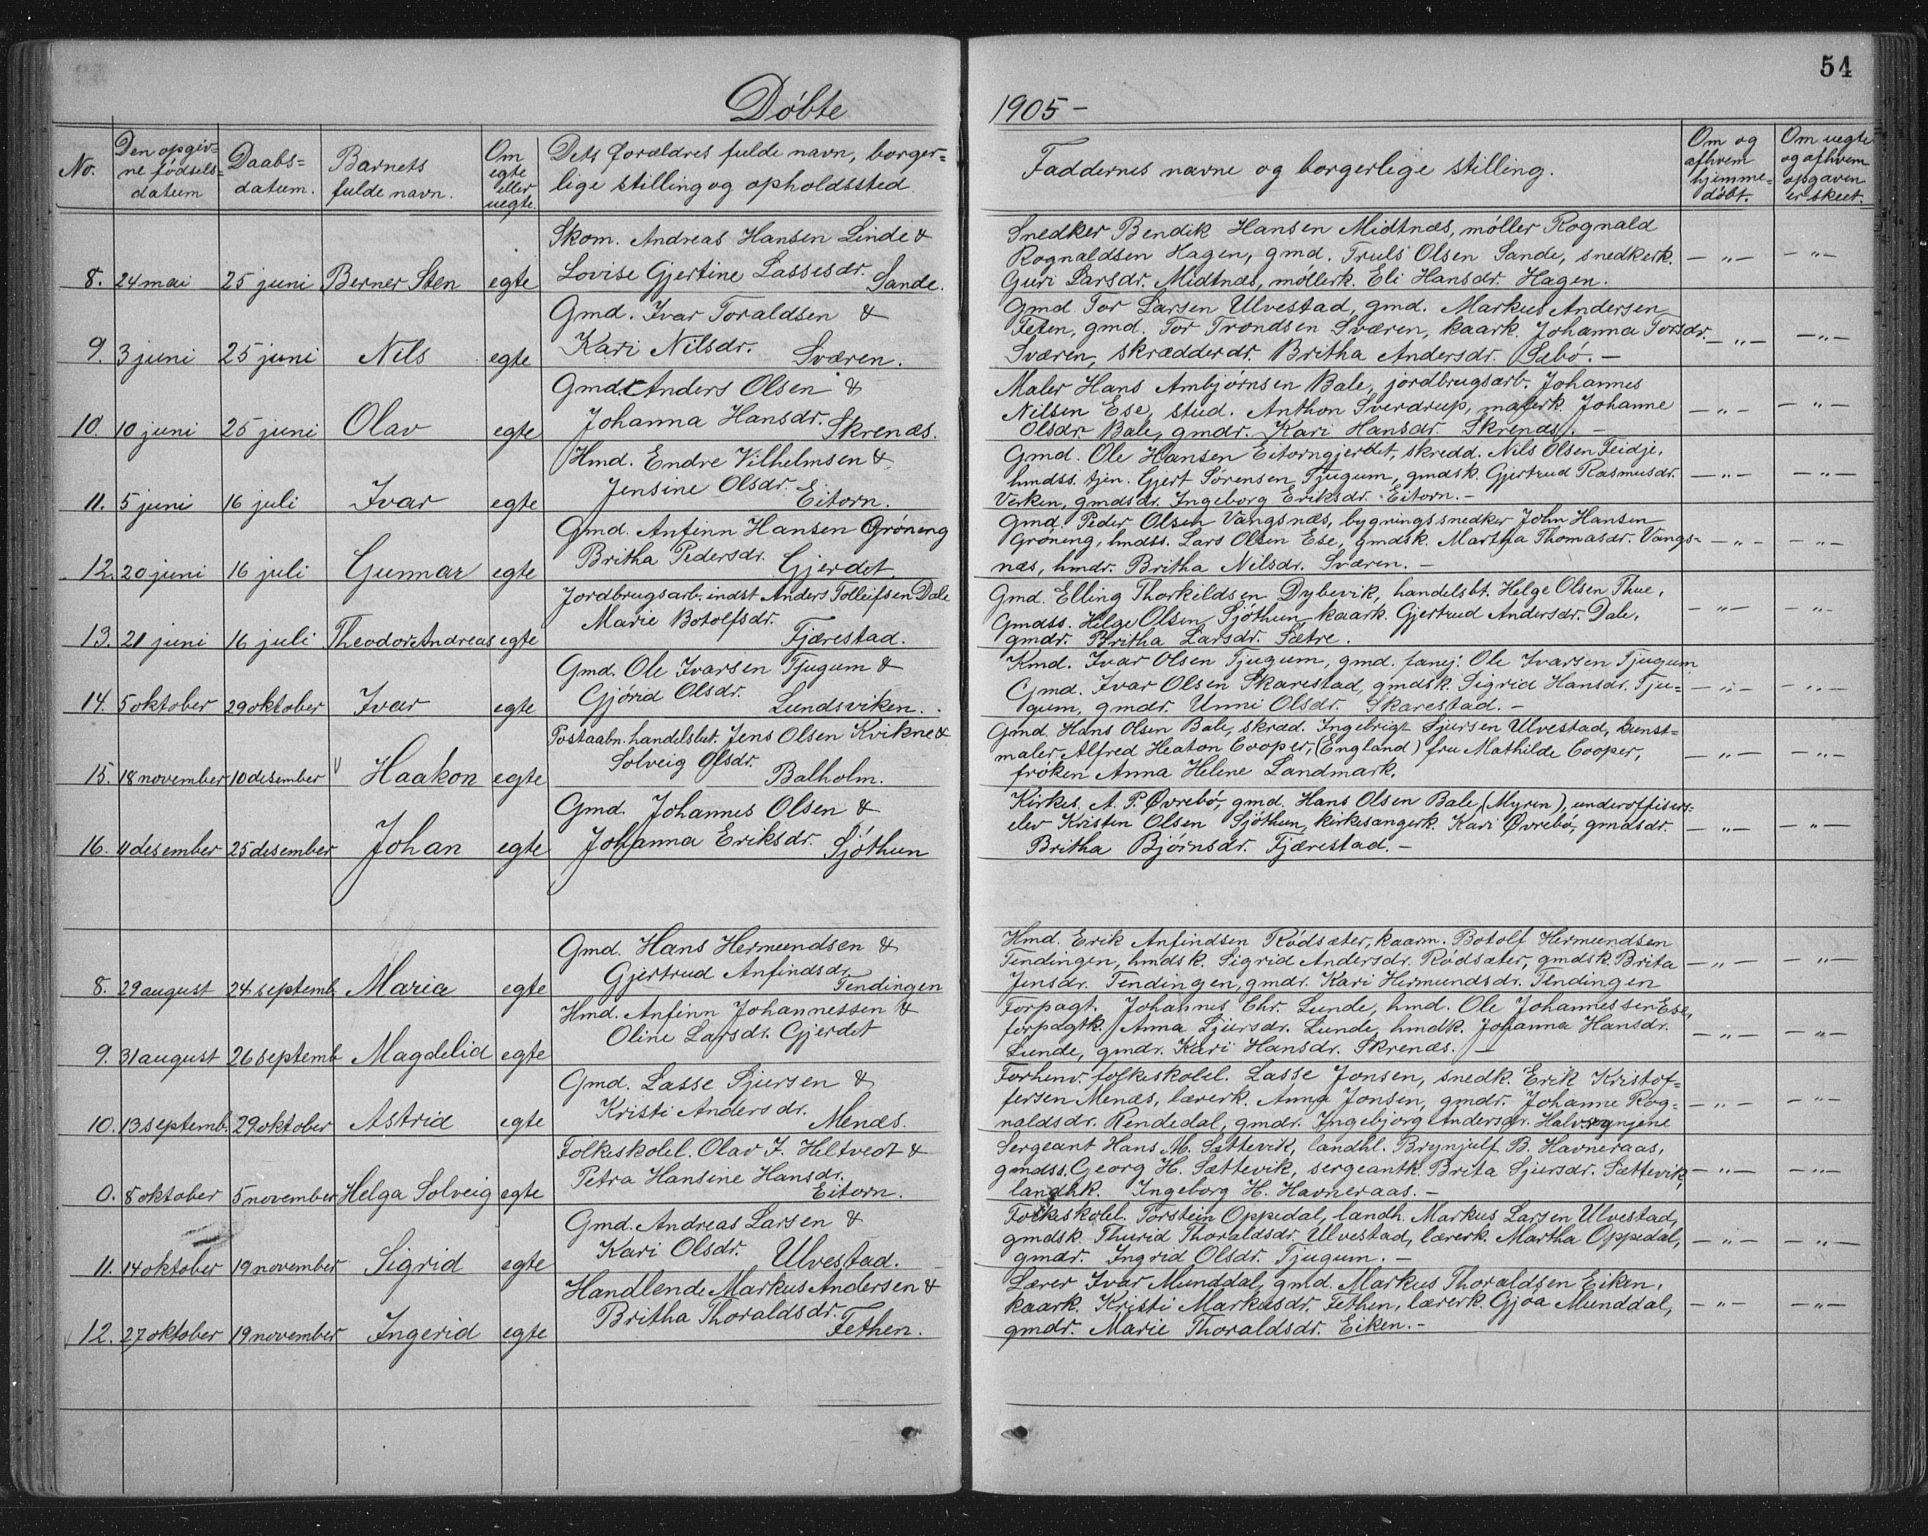 54
Døbte
1905-
No.
Den opgiv-
ne fødsels-
datum
Daabs-
datum.
Barnets
fulde navn.
Om
egte
eller
uegte.
Dets forældres fulde navn, borger-
lige stilling og opholdssted.
Faddernes navne og borgerlige stilling.
Om og
afhvem
hjemme-
døbt.
Om uegte
og afhvem
opgaven
er skeet.
Skom. Andreas Hansen Linde &
Lovise Gjertine Lassesdr. Sande.
8. 24 mai 25 juni Berner Sten egte
Snedker Bendik Hansen Midtnæs, møller Rognald
Rognaldsen Hagen, gmd. Truls Olsen Sande, snedkerk. — " — — " —
Guri Larsdr. Midtnæs, møllerk. Eli Hansdr. Hagen.
Gmd. Ivar Toraldsen &
Kari Nilsdr. Sværen.
9. 3 juni 25 juni Nils egte
Gmd Tor Larsen Ulvestad, gmd. Markus Andersen
Feten, gmd. Tor Trondsen Sværen, kaark. Johanna Torsdr. — " — — " —
Sværen, skrædderdr. Britha Andersdr. Sæbø. —
Gmd. Anders Olsen &
Johanna Hansdr. Skrenæs.
10. 10 juni 25 juni Olav egte
Maler Hans Ambjørnsen Bale, jordbrugsarb. Johannes
Nilsen Ese, stud. Anthon Sverdrup, malerk. Johanne — " — — " —
Olsdr. Bale, gmdr. Kari Hansdr. Skrenæs. —
Hmd. Endre Vilhelmsen &
Jensine Olsdr. Eitorn.
11. 5 juni 16 juli Ivar egte
Gmd. Ole Hansen Eitorngjerdet, skredd. Nils Olsen Feidje,
hmdss. tjen. Gjert Sørensen Tjugum, gmdsk. Gjertrud Rasmusdr. — " — — " —
Verken, gmdsdr. Ingeborg Eriksdr. Eitorn. —
Gmd. Anfinn Hansen Grøneng
Britha Pedersdr. Gjerdet.
12. 20 juni 16 juli Gunnar egte
Gmd. Peder Olsen Vangsnæs, bygningssnedker John Hansen
Grøneng, hmdss. Lars Olsen Ese, gmdsk. Martha Thomasdr. Vangs- — " — — " —
næs, hmdr. Britha Nilsdr. Sværen. —
Jordbrugsarb. indst Anders Tolleifsen Dale
Marie Botolfsdr. Fjærestad.
13. 21 juni 16 juli Theodor Andreas egte
Gmd. Elling Thorkildsen Dybevik, handelsbt. Helge Olsen Thue,
Gmdss. Helge Olsen Sjøthun, kaark. Gjertrud Andersdr. Dale, — " — — " —
gmdr. Britha Larsdr. Sætre.
Gmd. Ole Ivarsen Tjugum &
Gjørid Olsdr. Lundsviken.
14. 5 oktober 29 oktober Ivar egte
Kmd. Ivar Olsen Tjugum, gmd. fanej. Ole Ivarsen Tjugum
Gmd. Ivar Olsen Skarestad, gmdsk. Sigrid Hansdr. Tju- — " — — " —
gum, gmdr. Unni Olsdr. Skarestad. —
Postaabn. handelsbet. Jens Olsen Kvikne &
Solveig Olsdr. Balholm.
15. 18 november 10 desember V Haakon egte
Gmd. Hans Olsen Bale, skræd. Ingebrigt Sjursen Ulvestad, kunst-
maler Alfred Heaton Cooper, (England) fru Mathilde Cooper, — " — — " —
frøken Anna Helene Landmark.
Gmd. Johannes Olsen &
Johanna Eriksdr. Sjøthun
16. 4 desember 25 desember Johan egte
Kirkes. A. P. Øvrebø, gmd. Hans Olsen Bale (Myren), underoffisers-
elev Kristen Olsen Sjøthun, kirkesangerk. Kari Øvrebø, gmdsdr. — " — — " —
Britha Bjørnsdr. Fjærestad. —
Gmd. Hans Hermundsen &
Gjertrud Anfindsdr. Tendingen
8. 29 august 24 septemb. Maria egte
Hmd. Erik Anfindsen Rødsæter, kaarm. Botolf Hermundsen
Tendingen, hmdsk. Sigrid Andersdr. Rødsæter, gmdsk. Brita — " — — " —
Jensdr. Tendingen, gmdr. Kari Hermundsdr. Tendingen
Hmd. Anfinn Johannessen &
Oline Larsdr. Gjerdet
9. 31 august 26 septemb Magdelid egte
Forpagt. Johannes Chr. Lunde, hmd. Ole Johannessen Ese,
forpagtk. Anna Sjursdr. Lunde, hmdk. Johanna Hansdr. — " — — " —
Lunde, gmdr. Kari Hansdr. Skrenæs. —
Gmd. Lasse Sjursen &
Kristi Andersdr. Menæs.
10. 13 septemb. 29 oktober Astrid egte
Forhenv. folkeskolel. Lasse Jonsen, snedk. Erik Kristof-
fersen Menæs, lærerk. Anna Jonsen, gmdr. Johanne Rog- — " — — " —
naldsdr. Rendedal, gmdr. Ingebjørg Andersdr.
Folkeskolel. Olav J. Heltvedt &
Petra Hansine Hansdr. Eitorn.
0. 8 oktober 5 november Helga Solveig egte
Sergeant Hans M. Sættevik, landhl. Brynjulf B. Havneraas,
gmdss. Georg H. Sættevik, sergeantk. Brita Sjursdr. Sættevik, — " — — " —
landhk. Ingeborg H. Havneraas. —
Gmd. Andreas Larsen &
Kari Olsdr. Ulvestad.
11. 14 oktober 19 november Sigrid egte
Folkeskolel. Torstein Oppedal, landh. Markus Larsen Ulvestad,
gmdsk. Thurid Thoraldsdr. Ulvestad, lærerk. Martha Oppedal, — " — — " —
gmdr. Ingrid Olsdr. Tjugum. —
Handlende Markus Andersen &
Britha Thoraldsdr. Fethen.
12. 27 oktober 19 november Ingerid egte
Lærer Ivar Munddal, gmd. Markus Thoraldsen Eiken,
kaark. Kristi Markusdr. Fethen, lærerk. Gjøa Munddal, — " — — " —
gmdr. Marie Thoraldsdr. Eiken. —